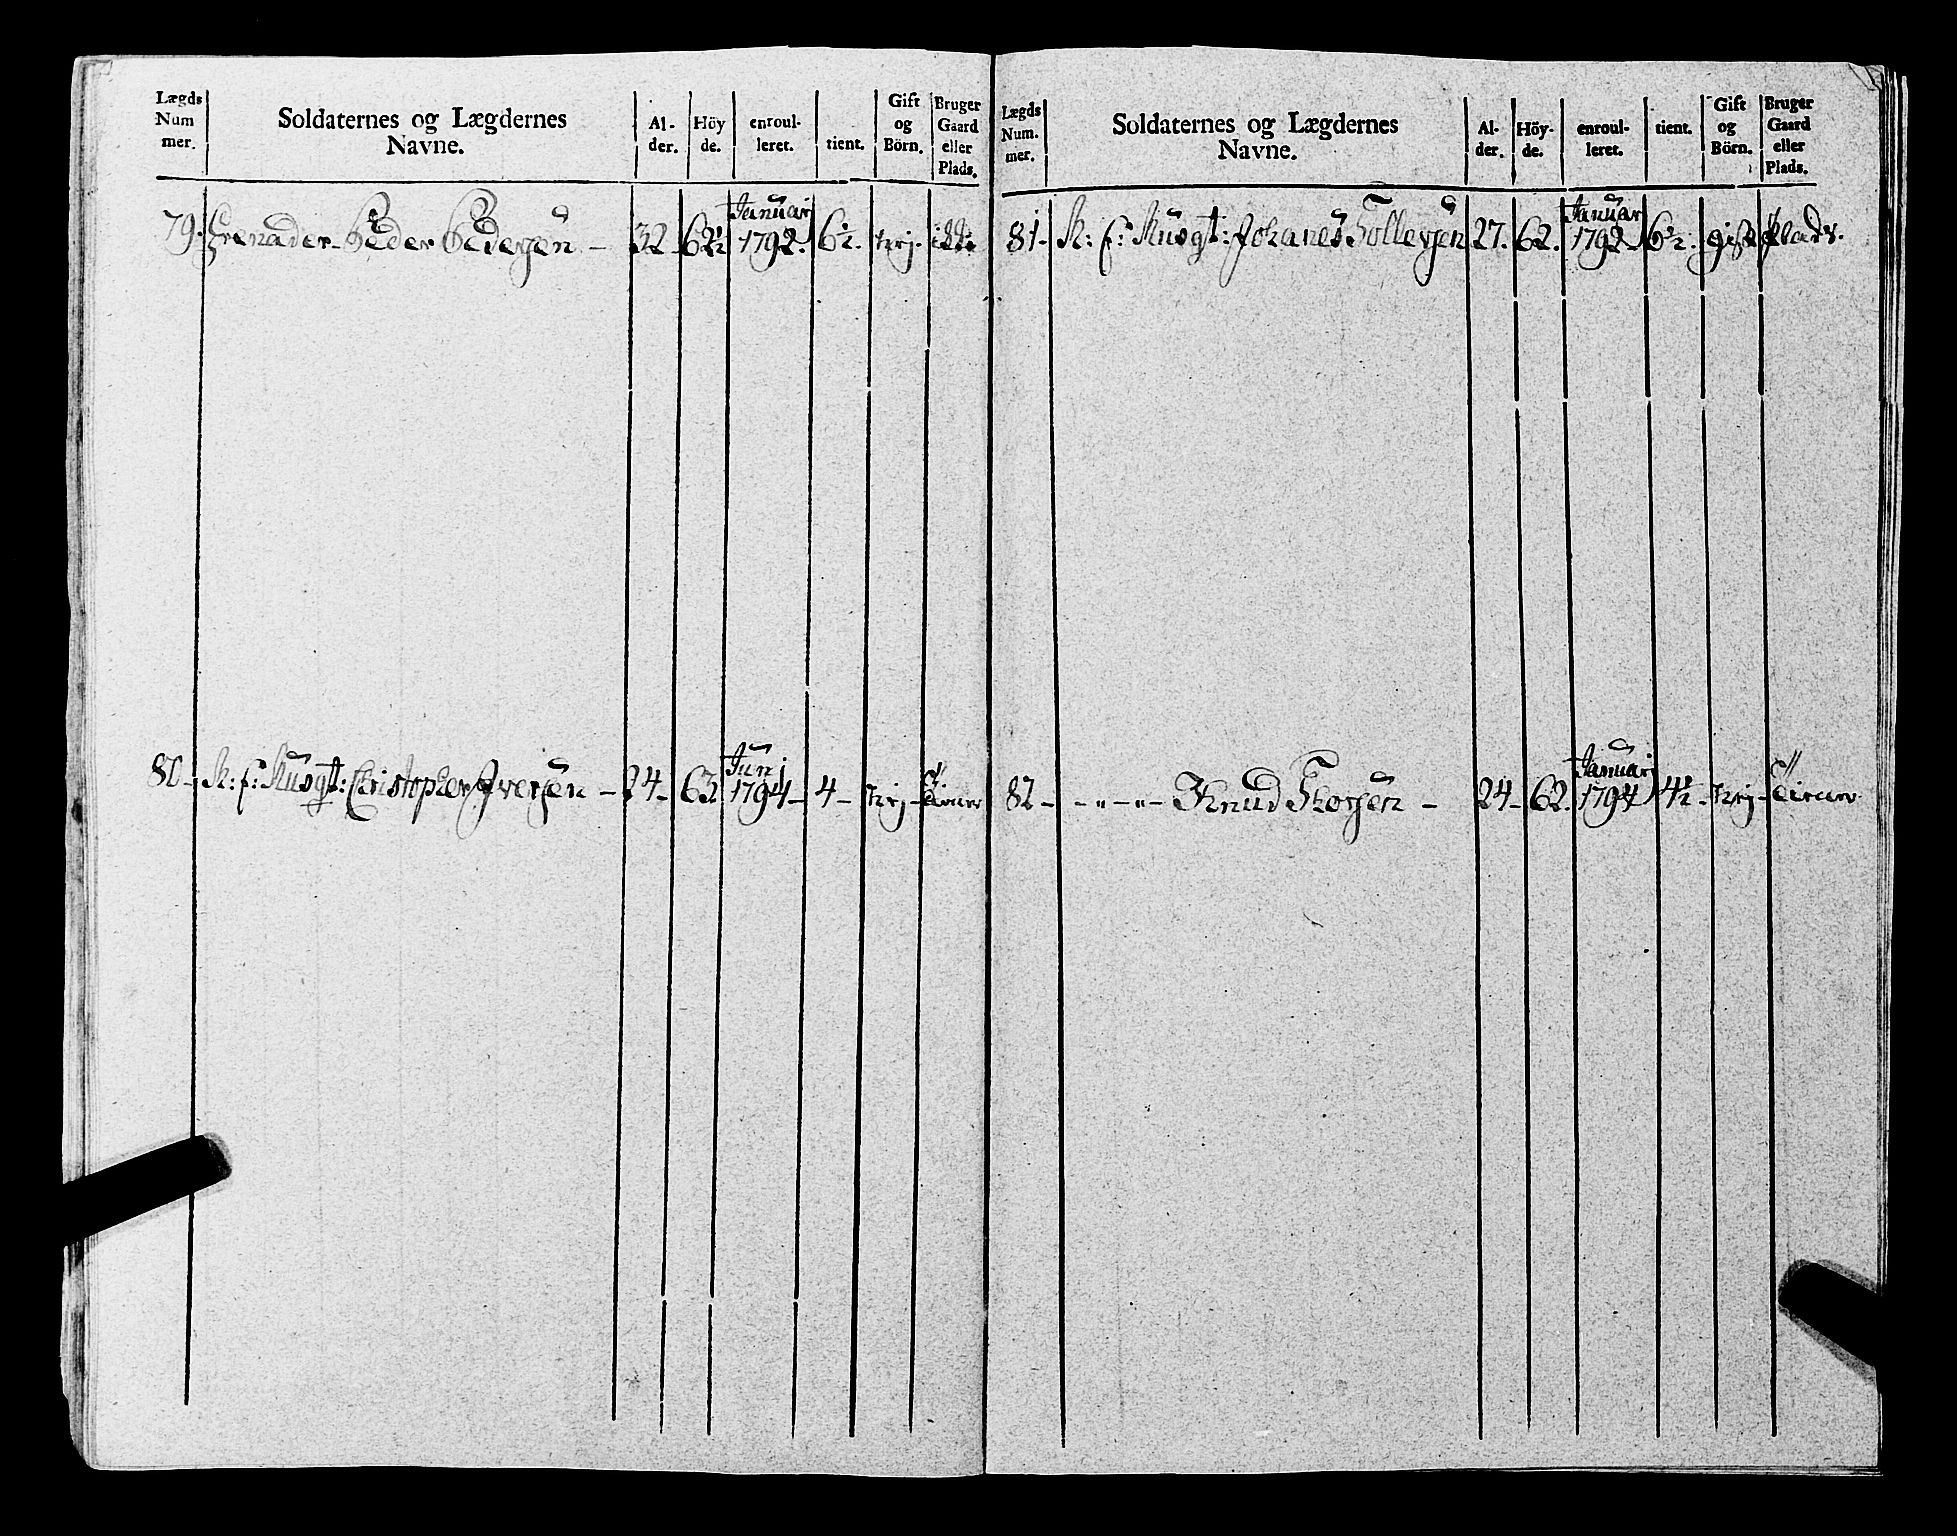 Lægds Num mer. | Soldaternes og Lægdernes Navne. | Al- der. | Höy de. | enroul- leret. | tient. | Gift og Börn. | Bruger Gaard eller Plads.
79. Grenader Peder Pedersen – 32 – 62½ Januar 1792. 6½. Nej. ikke
80 – N: f: Musqt: Christopher Iversen – 24 – 63 Junj 1794 – 4 – Nej – Tiener
Lægds Num. mer. | Soldaternes og Lægdernes Navne. | Al- der. | Höy- de. | enroul- leret. | tient. | Gift og Börn. | Bruger Gaard eller Plads.
81. N: f: Musqt: Johanes Tollevsen 27. 62. Januar 1792 6½. gift Plads.
82 – – „ – „ – Knud Thorsen – 24 – 62. Januarj 1794 4½ – Nej – Tiener